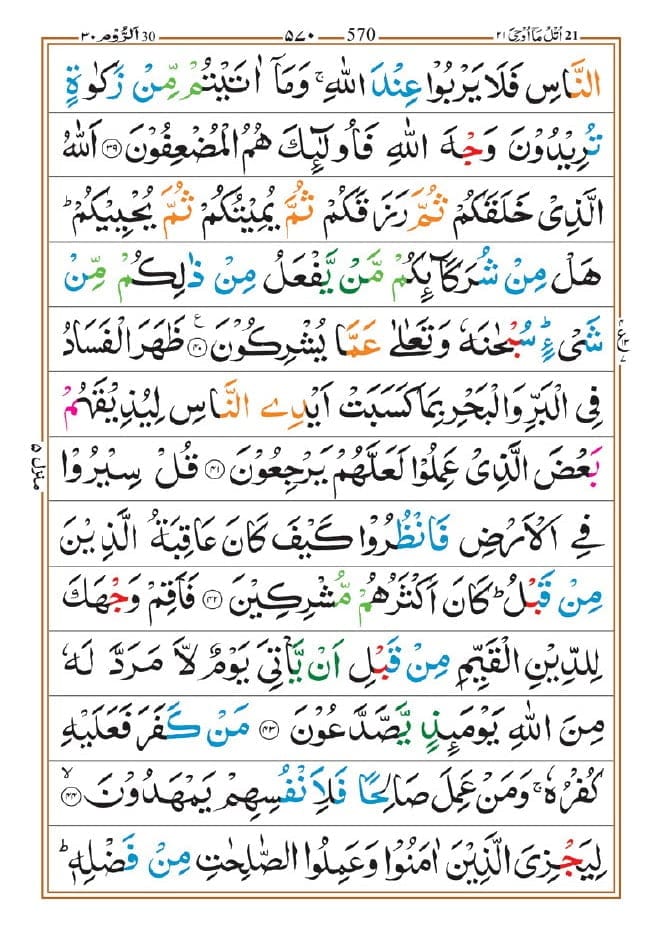 21 اُتْلُ مَآ اُوْحِیَ ۲۱ 570 ۵۷۰ 30 اَلرُّوْم ۳۰
النَّاسِ فَلَا یَرْبُوْا عِنْدَ اللّٰهِ ۚ وَمَاۤ اٰتَیْتُمْ مِّنْ زَكٰوةٍ
تُرِیْدُوْنَ وَجْهَ اللّٰهِ فَاُولٰٓئِكَ هُمُ الْمُضْعِفُوْنَ ۝۳۹ اَللّٰهُ
الَّذِیْ خَلَقَكُمْ ثُمَّ رَزَقَكُمْ ثُمَّ یُمِیْتُكُمْ ثُمَّ یُحْیِیْكُمْ ؕ
هَلْ مِنْ شُرَكَآئِكُمْ مَّنْ یَّفْعَلُ مِنْ ذٰلِكُمْ مِّنْ
شَیْءٍ ؕ سُبْحٰنَهٗ وَتَعٰلٰی عَمَّا یُشْرِكُوْنَ ۝۴۰ ع ظَهَرَ الْفَسَادُ
فِی الْبَرِّ وَالْبَحْرِ بِمَا كَسَبَتْ اَیْدِی النَّاسِ لِیُذِیْقَهُمْ
بَعْضَ الَّذِیْ عَمِلُوْا لَعَلَّهُمْ یَرْجِعُوْنَ ۝۴۱ قُلْ سِیْرُوْا
فِی الْاَرْضِ فَانْظُرُوْا كَیْفَ كَانَ عَاقِبَةُ الَّذِیْنَ
مِنْ قَبْلُ ؕ كَانَ اَكْثَرُهُمْ مُّشْرِكِیْنَ ۝۴۲ فَاَقِمْ وَجْهَكَ
لِلدِّیْنِ الْقَیِّمِ مِنْ قَبْلِ اَنْ یَّاْتِیَ یَوْمٌ لَّا مَرَدَّ لَهٗ
مِنَ اللّٰهِ یَوْمَئِذٍ یَّصَّدَّعُوْنَ ۝۴۳ مَنْ كَفَرَ فَعَلَیْهِ
كُفْرُهٗ ۚ وَمَنْ عَمِلَ صَالِحًا فَلِاَنْفُسِهِمْ یَمْهَدُوْنَ ۝۴۴ ۙ
لِیَجْزِیَ الَّذِیْنَ اٰمَنُوْا وَعَمِلُوا الصّٰلِحٰتِ مِنْ فَضْلِهٖ ؕ
منزل ۵